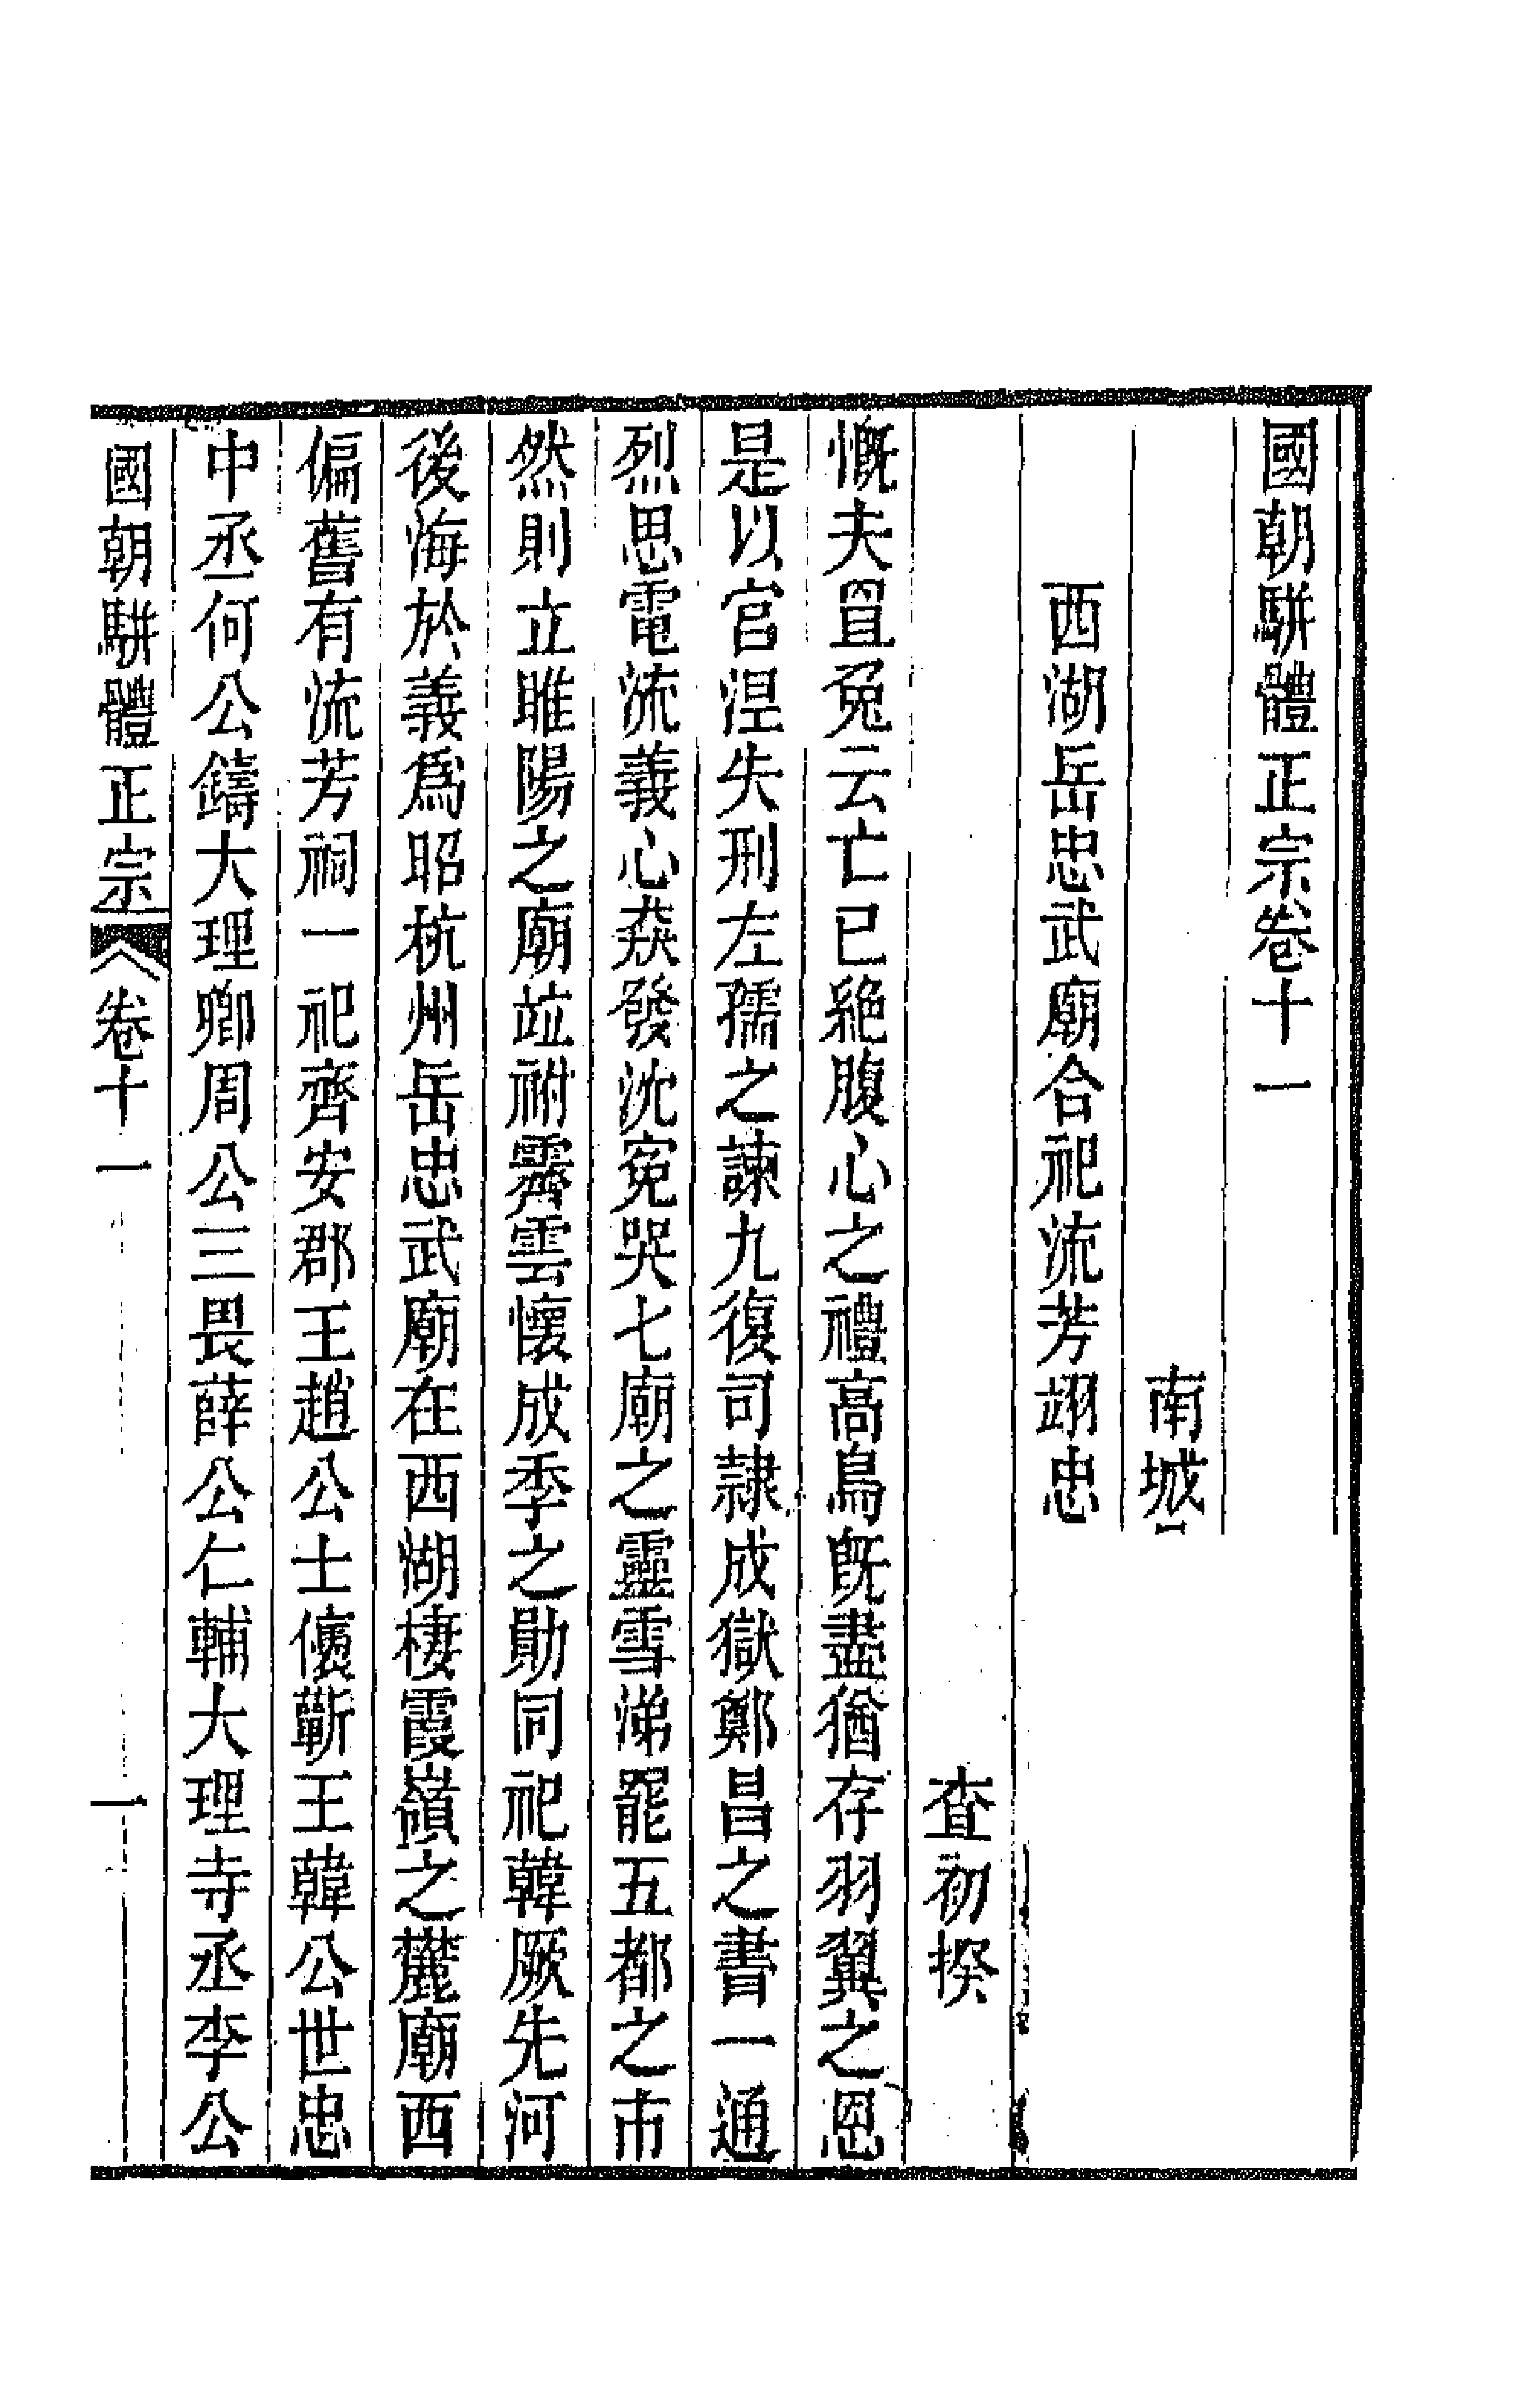 國朝駢體正宗卷十一
南城
西湖岳忠武廟合祀流芳翊忠
查初揆
慨夫罝兔云亡已絕腹心之禮高鳥旣盡猶存羽翼之恩
是以宮涅失刑左孺之諫九復司隷成獄鄭昌之書一通
烈思電流義心猋發沈寃哭七廟之靈雪涕罷五都之市
然則立睢陽之廟竝祔霽雲懷成季之勛同祀韓厥先河
後海於義爲昭杭州岳忠武廟在西湖棲霞嶺之麓廟西
偏舊有流芳祠一祀齊安郡王趙公士㒟蘄王韓公世忠
中丞何公鑄大理卿周公三畏薛公仁輔大理寺丞李公
國朝駢體正宗 卷十一 一